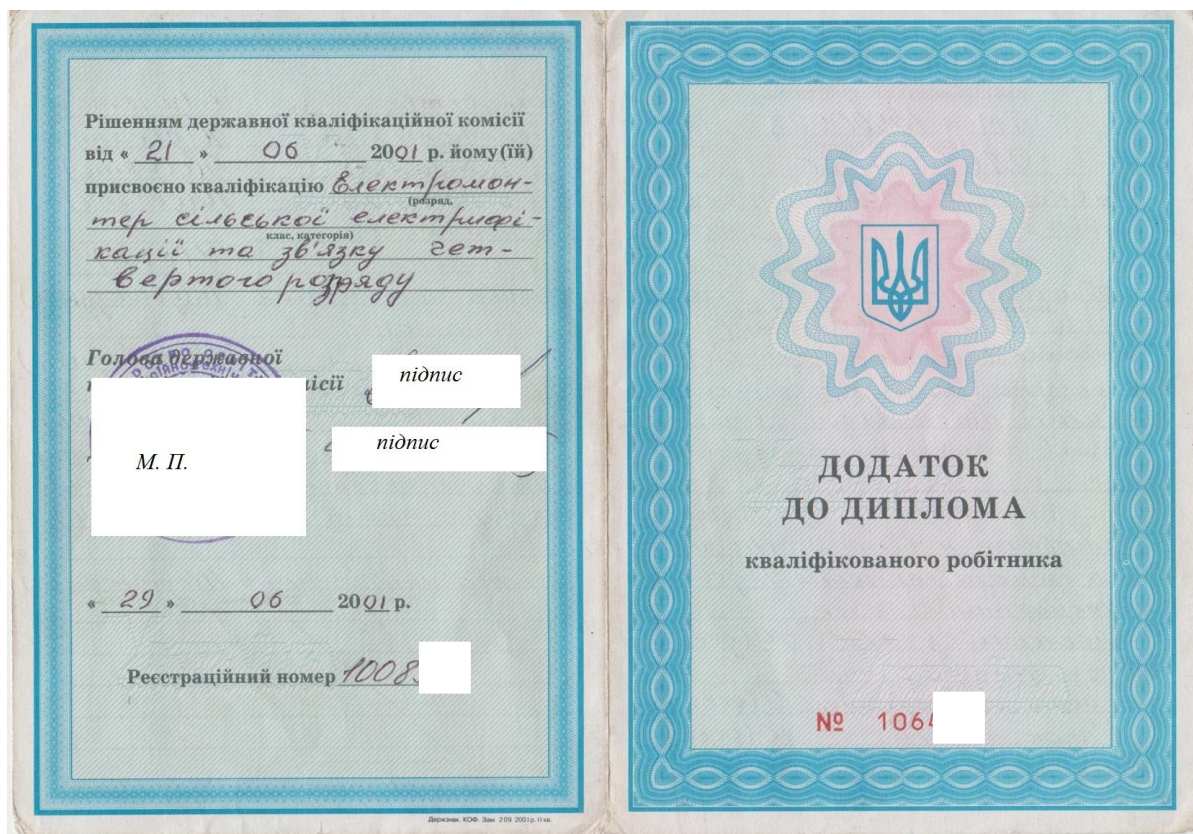 Рішенням державної кваліфікаційної комісії
від « 21 » 06 2001 р. йому(їй)
присвоєно кваліфікацію Електромон-
(розряд,
тер сільської електрифі-
клас, категорія)
кації та зв'язку чет-
вертого розряду
Голова державної
комісії
підпис
підпис
М. П.
« 29 » 06 2001 р.
Реєстраційний номер 1008
Держзнак. КОФ. Зам. 209 2001р. II кв.
ДОДАТОК
ДО ДИПЛОМА
кваліфікованого робітника
№ 106